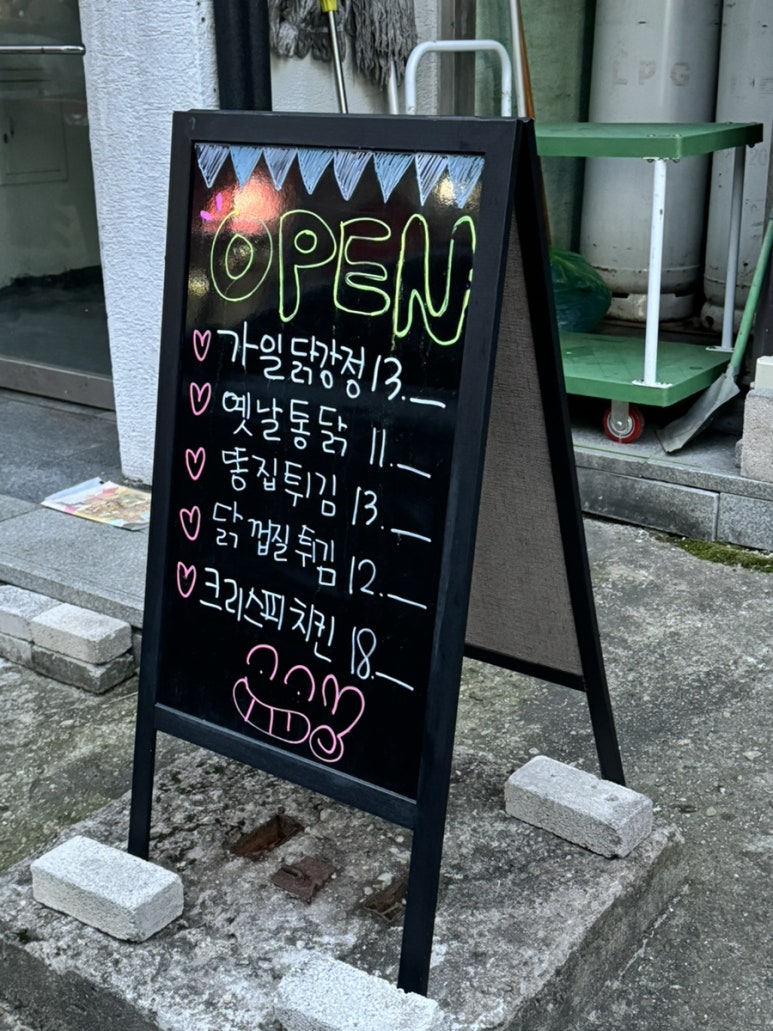 OPEN
가일닭강정 13.—
옛날통닭 11.—
똥집튀김 13.—
닭껍질튀김 12.—
크리스피치킨 18.—
LPG